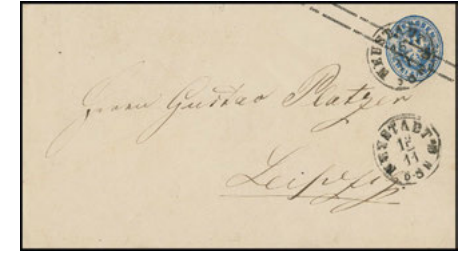 NEUST
Herrn Gustav Platzer
NEUSTADT
12
11
Leipzig